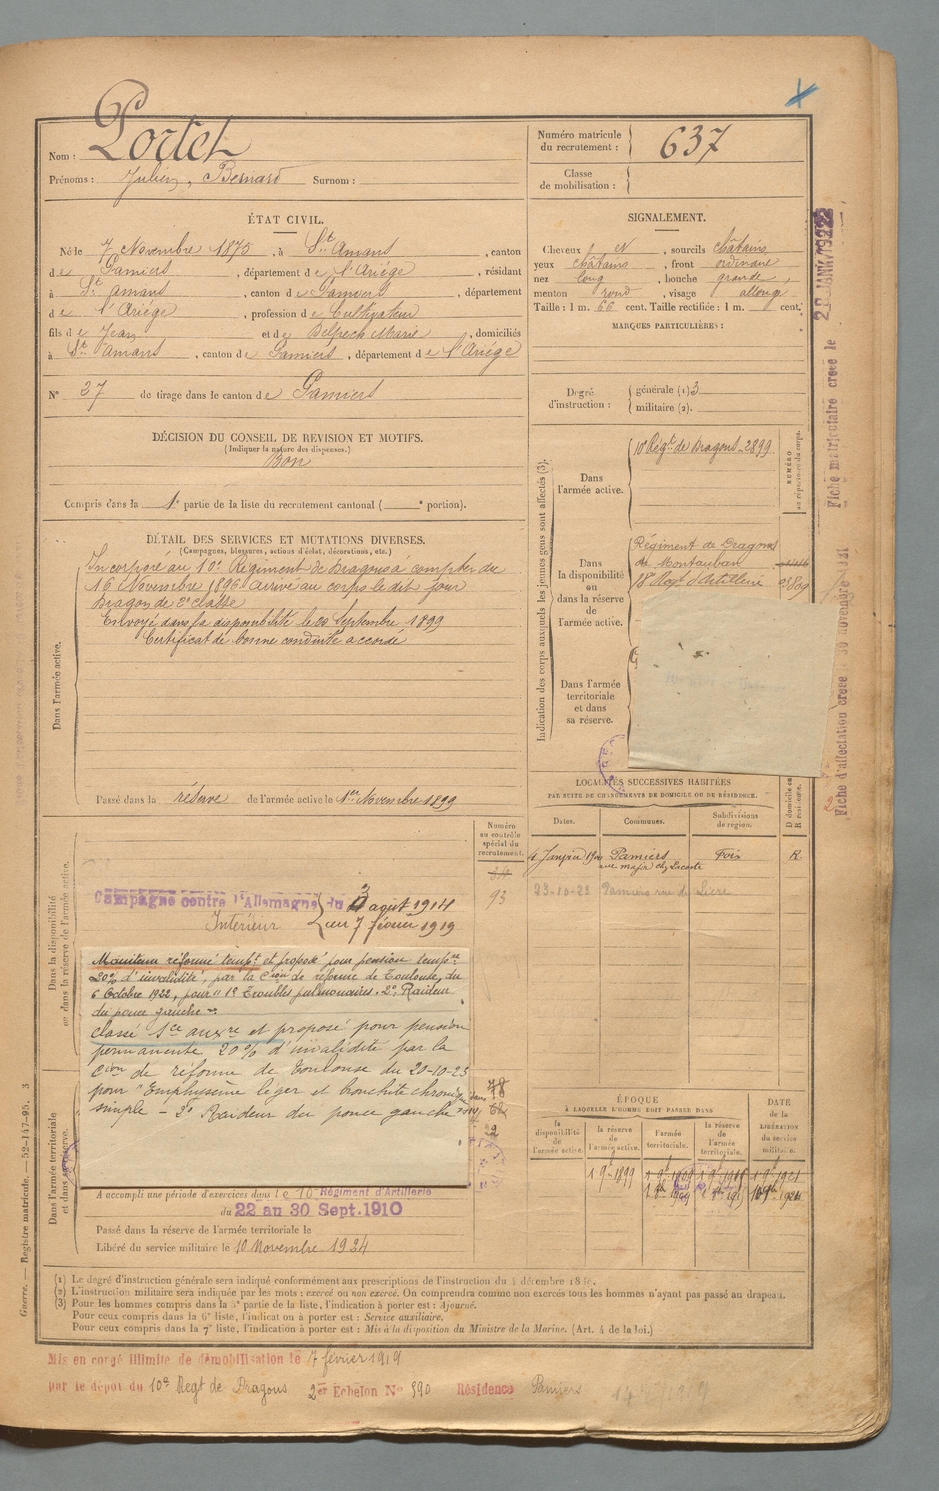 Nom : Portet
Prénoms : Julien, Bernard Surnom :
Numéro matricule du recrutement : 637
Classe de mobilisation :
ÉTAT CIVIL.
Né le 7 Novembre 1875, à St Amans, canton
de Pamiers, département de l'Ariège, résidant
à St Amans, canton de Pamiers, département
de l'Ariège, profession de Cultivateur
fils de Jean et de Delpech Marie, domiciliés
à St Amans, canton de Pamiers, département de l'Ariège
N° 37 de tirage dans le canton de Pamiers
SIGNALEMENT.
Cheveux N, sourcils châtains
yeux châtains, front ordinaire
nez long, bouche grande,
menton rond, visage allongé
Taille : 1 m. 66 cent. Taille rectifiée : 1 m. cent.
MARQUES PARTICULIÈRES :
Degré d'instruction : générale (1) 3
militaire (2).
DÉCISION DU CONSEIL DE REVISION ET MOTIFS.
(Indiquer la nature des dispenses.)
Bon
Compris dans la 1e partie de la liste du recrutement cantonal ( e portion).
DÉTAIL DES SERVICES ET MUTATIONS DIVERSES.
(Campagnes, blessures, actions d'éclat, décorations, etc.)
Dans l'armée active.
Incorporé au 10e Régiment de Dragons à compter du
16 Novembre 1896 arrivé au corps le dit jour
Dragon de 2e classe
Envoyé dans la disponibilité le 20 Septembre 1899
Certificat de bonne conduite accordé
Passé dans la réserve de l'armée active le 1er Novembre 1899
Indication des corps auxquels les jeunes gens sont affectés (3).
NUMÉRO au répertoire du corps.
Dans l'armée active.
10e Régt de Dragons 2899
Dans la disponibilité ou dans la réserve de l'armée active.
Régiment de Dragons
de Montauban
18e Regt d'Artillerie
Dans l'armée territoriale et dans sa réserve.
Fiche matriculaire créée le
Fiche d'affectation créée le 30 novembre 1921
LOCALITÉS SUCCESSIVES HABITÉES
PAR SUITE DE CHANGEMENTS DE DOMICILE OU DE RÉSIDENCE.
Dates. Communes. Subdivisions de région. D domicile ou R résidence.
Pamiers Foix R
rue major chez Lacoste
23-10-23 Pamiers rue de
Numéro au contrôle spécial du recrutement.
93
Dans la disponibilité ou dans la réserve de l'armée active.
Campagne contre l'Allemagne du 3 août 1914
Intérieur au 7 février 1919
Maintenu réformé tempre et proposé pour pension tempre
20% d'invalidité, par la Cion de réforme de Toulouse, du
6 Octobre 1922, pour "1° Troubles pulmonaires. 2°, Raideur
du pouce gauche".
Classé Sce auxre et proposé pour pension
permanente 20% d'invalidité par la
Cion de réforme de Toulouse du 20-10-23
pour "Emphysème léger et bronchite chronique
simple - 2° Raideur du pouce gauche"
Dans l'armée territoriale et dans sa réserve.
A accompli une période d'exercices dans le 10e Régiment d'Artillerie
du 22 au 30 Sept. 1910
Passé dans la réserve de l'armée territoriale le
Libéré du service militaire le 10 Novembre 1924
ÉPOQUE
À LAQUELLE L'HOMME DOIT PASSER DANS
la disponibilité de l'armée active. la réserve de l'armée active. l'armée territoriale. la réserve de l'armée territoriale. DATE de la LIBÉRATION du service militaire.
1 9bre 1899
(1) Le degré d'instruction générale sera indiqué conformément aux prescriptions de l'instruction du 4 décembre 1889.
(2) L'instruction militaire sera indiquée par les mots : exercé ou non exercé. On comprendra comme non exercés tous les hommes n'ayant pas passé au drapeau.
(3) Pour les hommes compris dans la 5e partie de la liste, l'indication à porter est : Ajourné.
Pour ceux compris dans la 6e liste, l'indication à porter est : Service auxiliaire.
Pour ceux compris dans la 7e liste, l'indication à porter est : Mis à la disposition du Ministre de la Marine. (Art. 4 de la loi.)
Guerre. — Registre matricule. — 52-147-95. 3
Mis en congé illimité de démobilisation le 7 février 1919
par le dépôt du 10e Regt de Dragons 2er Echelon N° 390 Résidence Pamiers